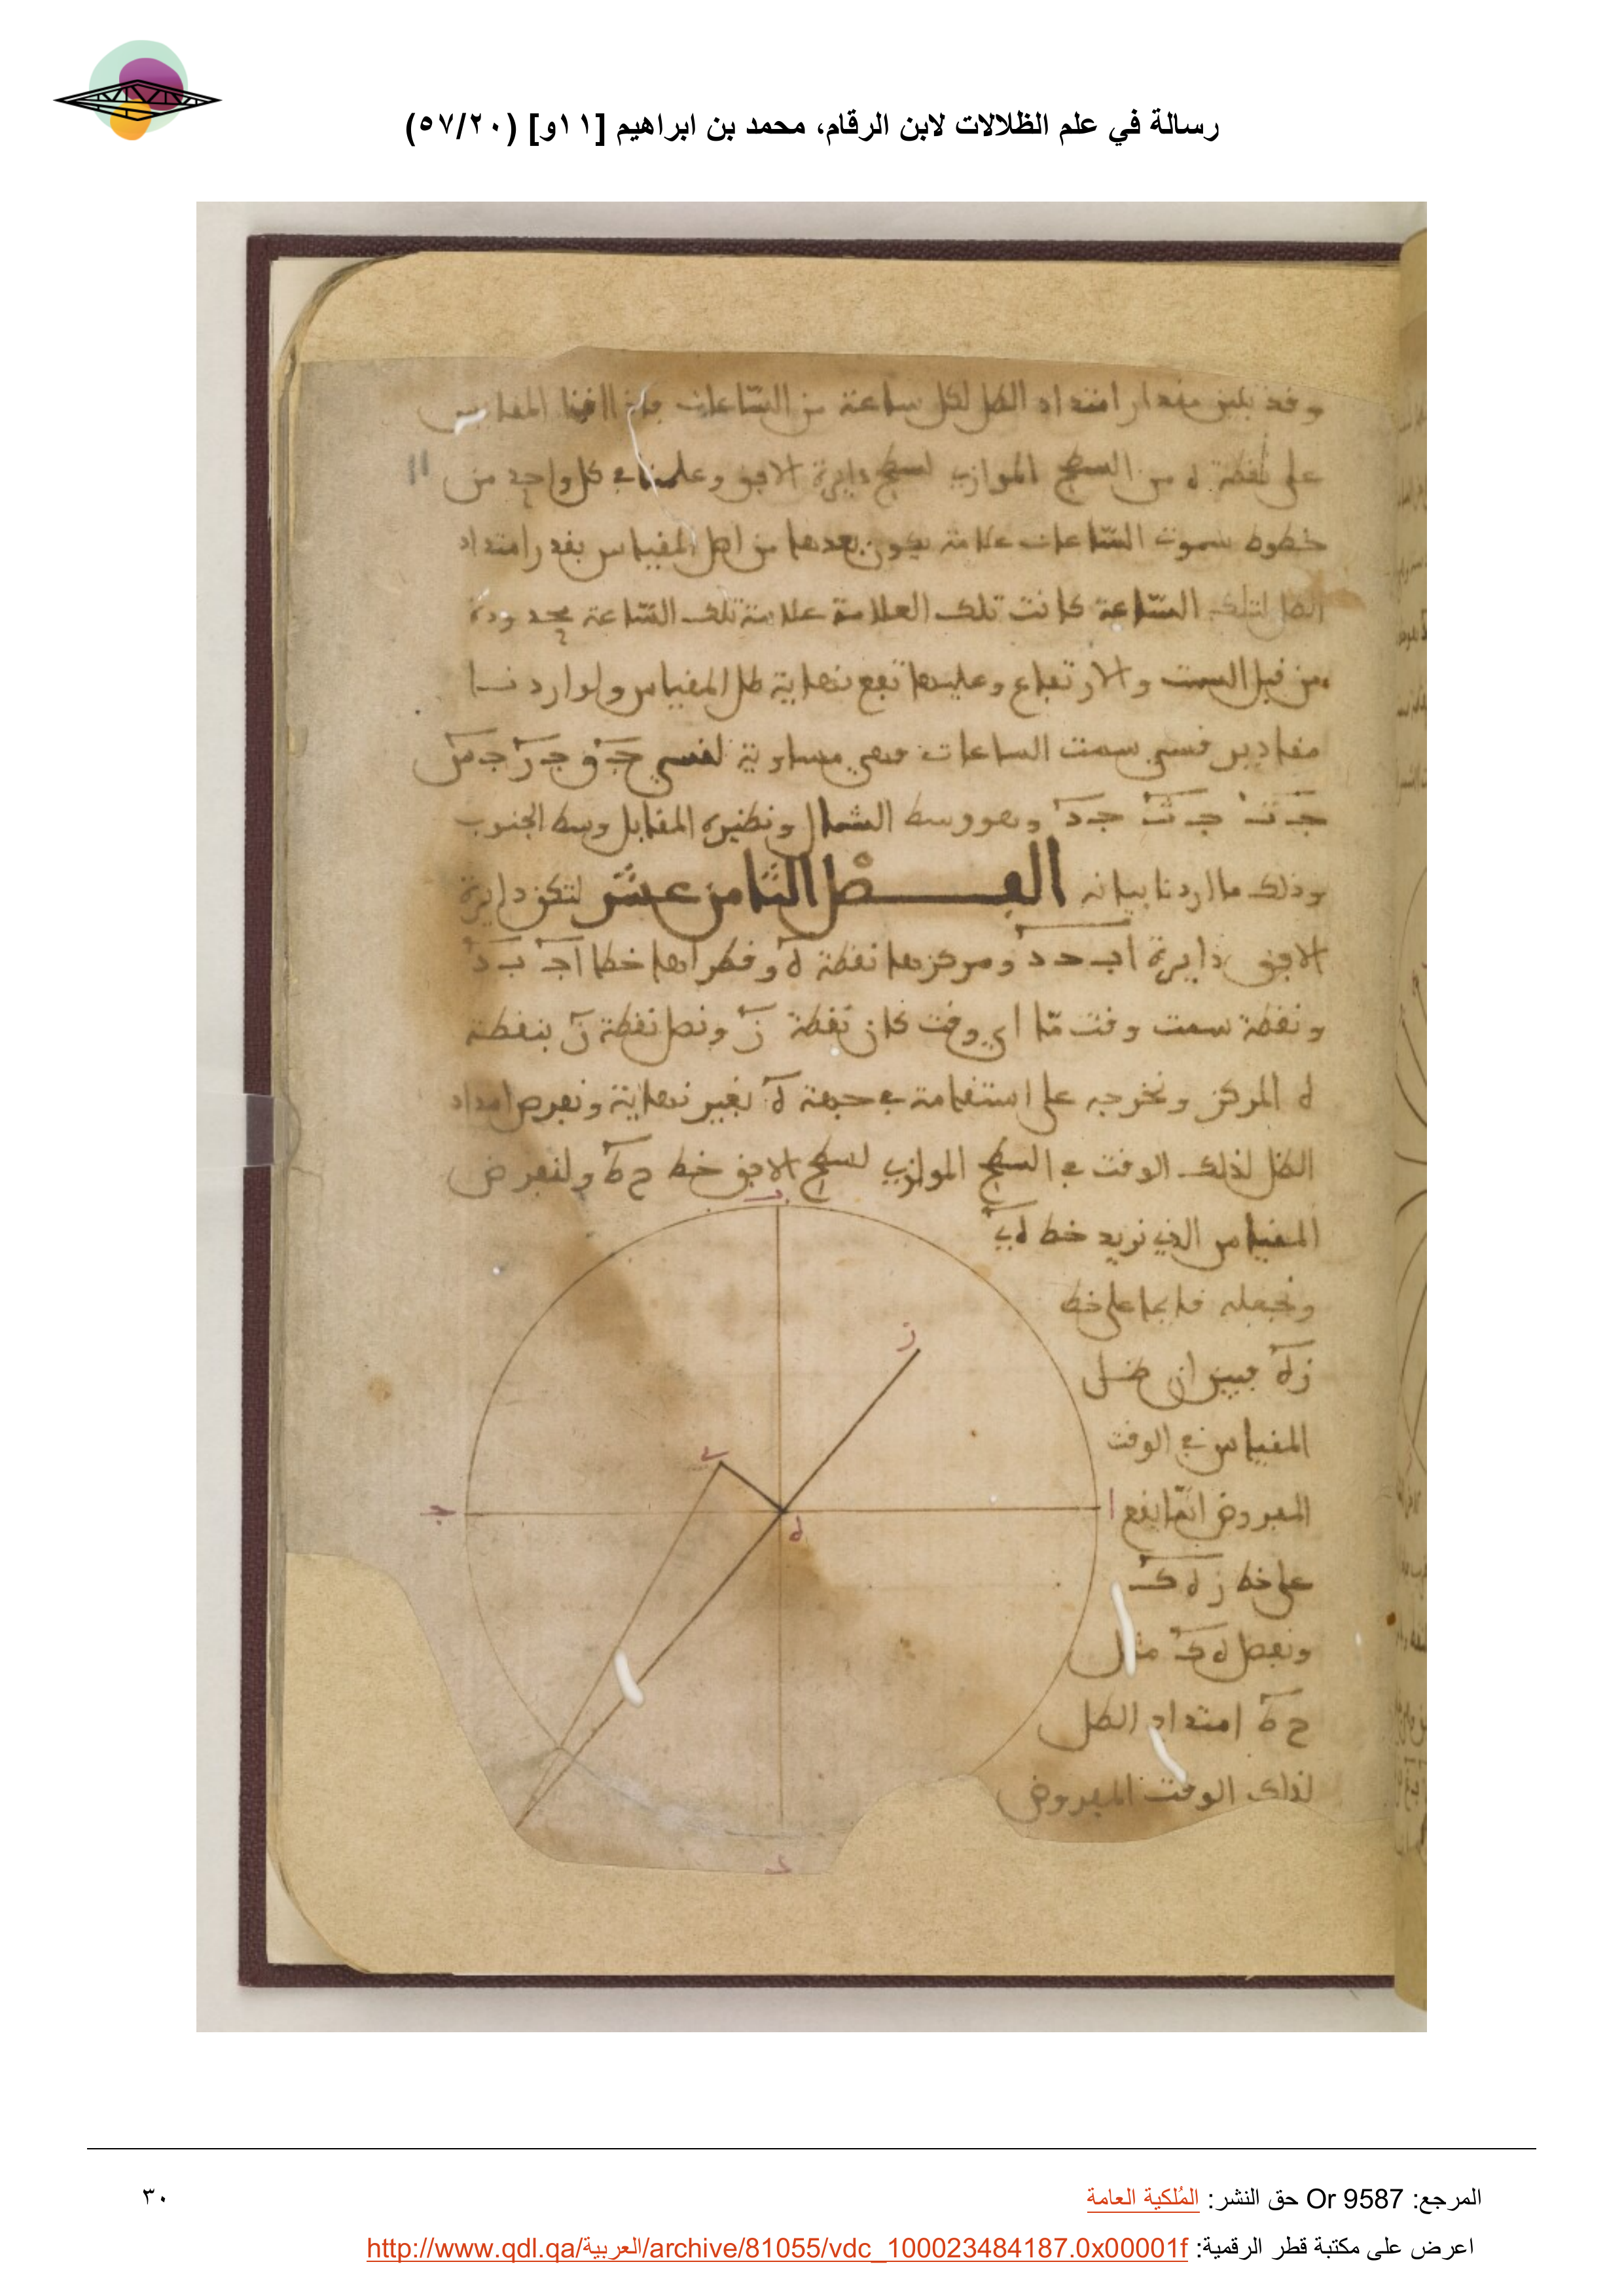 رسالة في علم الظلالات لابن الرقام، محمد بن ابراهيم [١١و] (٥٧/٢٠)
وقد تبين مقدار امتداد الظل لكل ساعة من الساعات فاذا اقمنا المقياس
على نقطة ه من السطح الموازي لسطح دايرة الافق وعلمنا في كل واحد من
11
خطوط سموت الساعات علامة يكون بعدها من اصل المقياس بقدر امتداد
الظل لتلك الساعة كانت تلك العلامة علامة تلك الساعة محدودة
من قبل السمت والارتفاع وعليها تقع نهاية ظل المقياس ولو اردنا
مقادير قسي سمت الساعات فهي مساوية لقسي جق جر جش
جت جث جد وهو وسط الشمال ونظيره المقابل وسط الجنوب
وذلك ما اردنا بيانه الفصل الثامن عشر لتكن دايرة
الافق دايرة اب حد ومركزها نقطة ه وقطراها خطا اج ب د
ونقطة سمت وقت ما اي وقت كان نقطة ز ونصل نقطة ز بنقطة
ه المركز ونخرجه على استقامة في جهة ه بغير نهاية ونفرض امتداد
الظل لذلك الوقت في السطح الموازي لسطح الافق خط ح ط ولنفرض
المقياس الذي نريد خط ه ي
ونجعله قايما على خط
زه فبين ان ظل
المقياس في الوقت
المفروض انما يقع
على خط ز ه ك
ونفصل ه ك مثل
ح ط امتداد الظل
لذلك الوقت المفروض
ب
ز
ي
ج
ا
ه
د
المرجع: Or 9587 حق النشر: المُلكية العامة
٣٠
اعرض على مكتبة قطر الرقمية: http://www.qdl.qa/العربية/archive/81055/vdc_100023484187.0x00001f